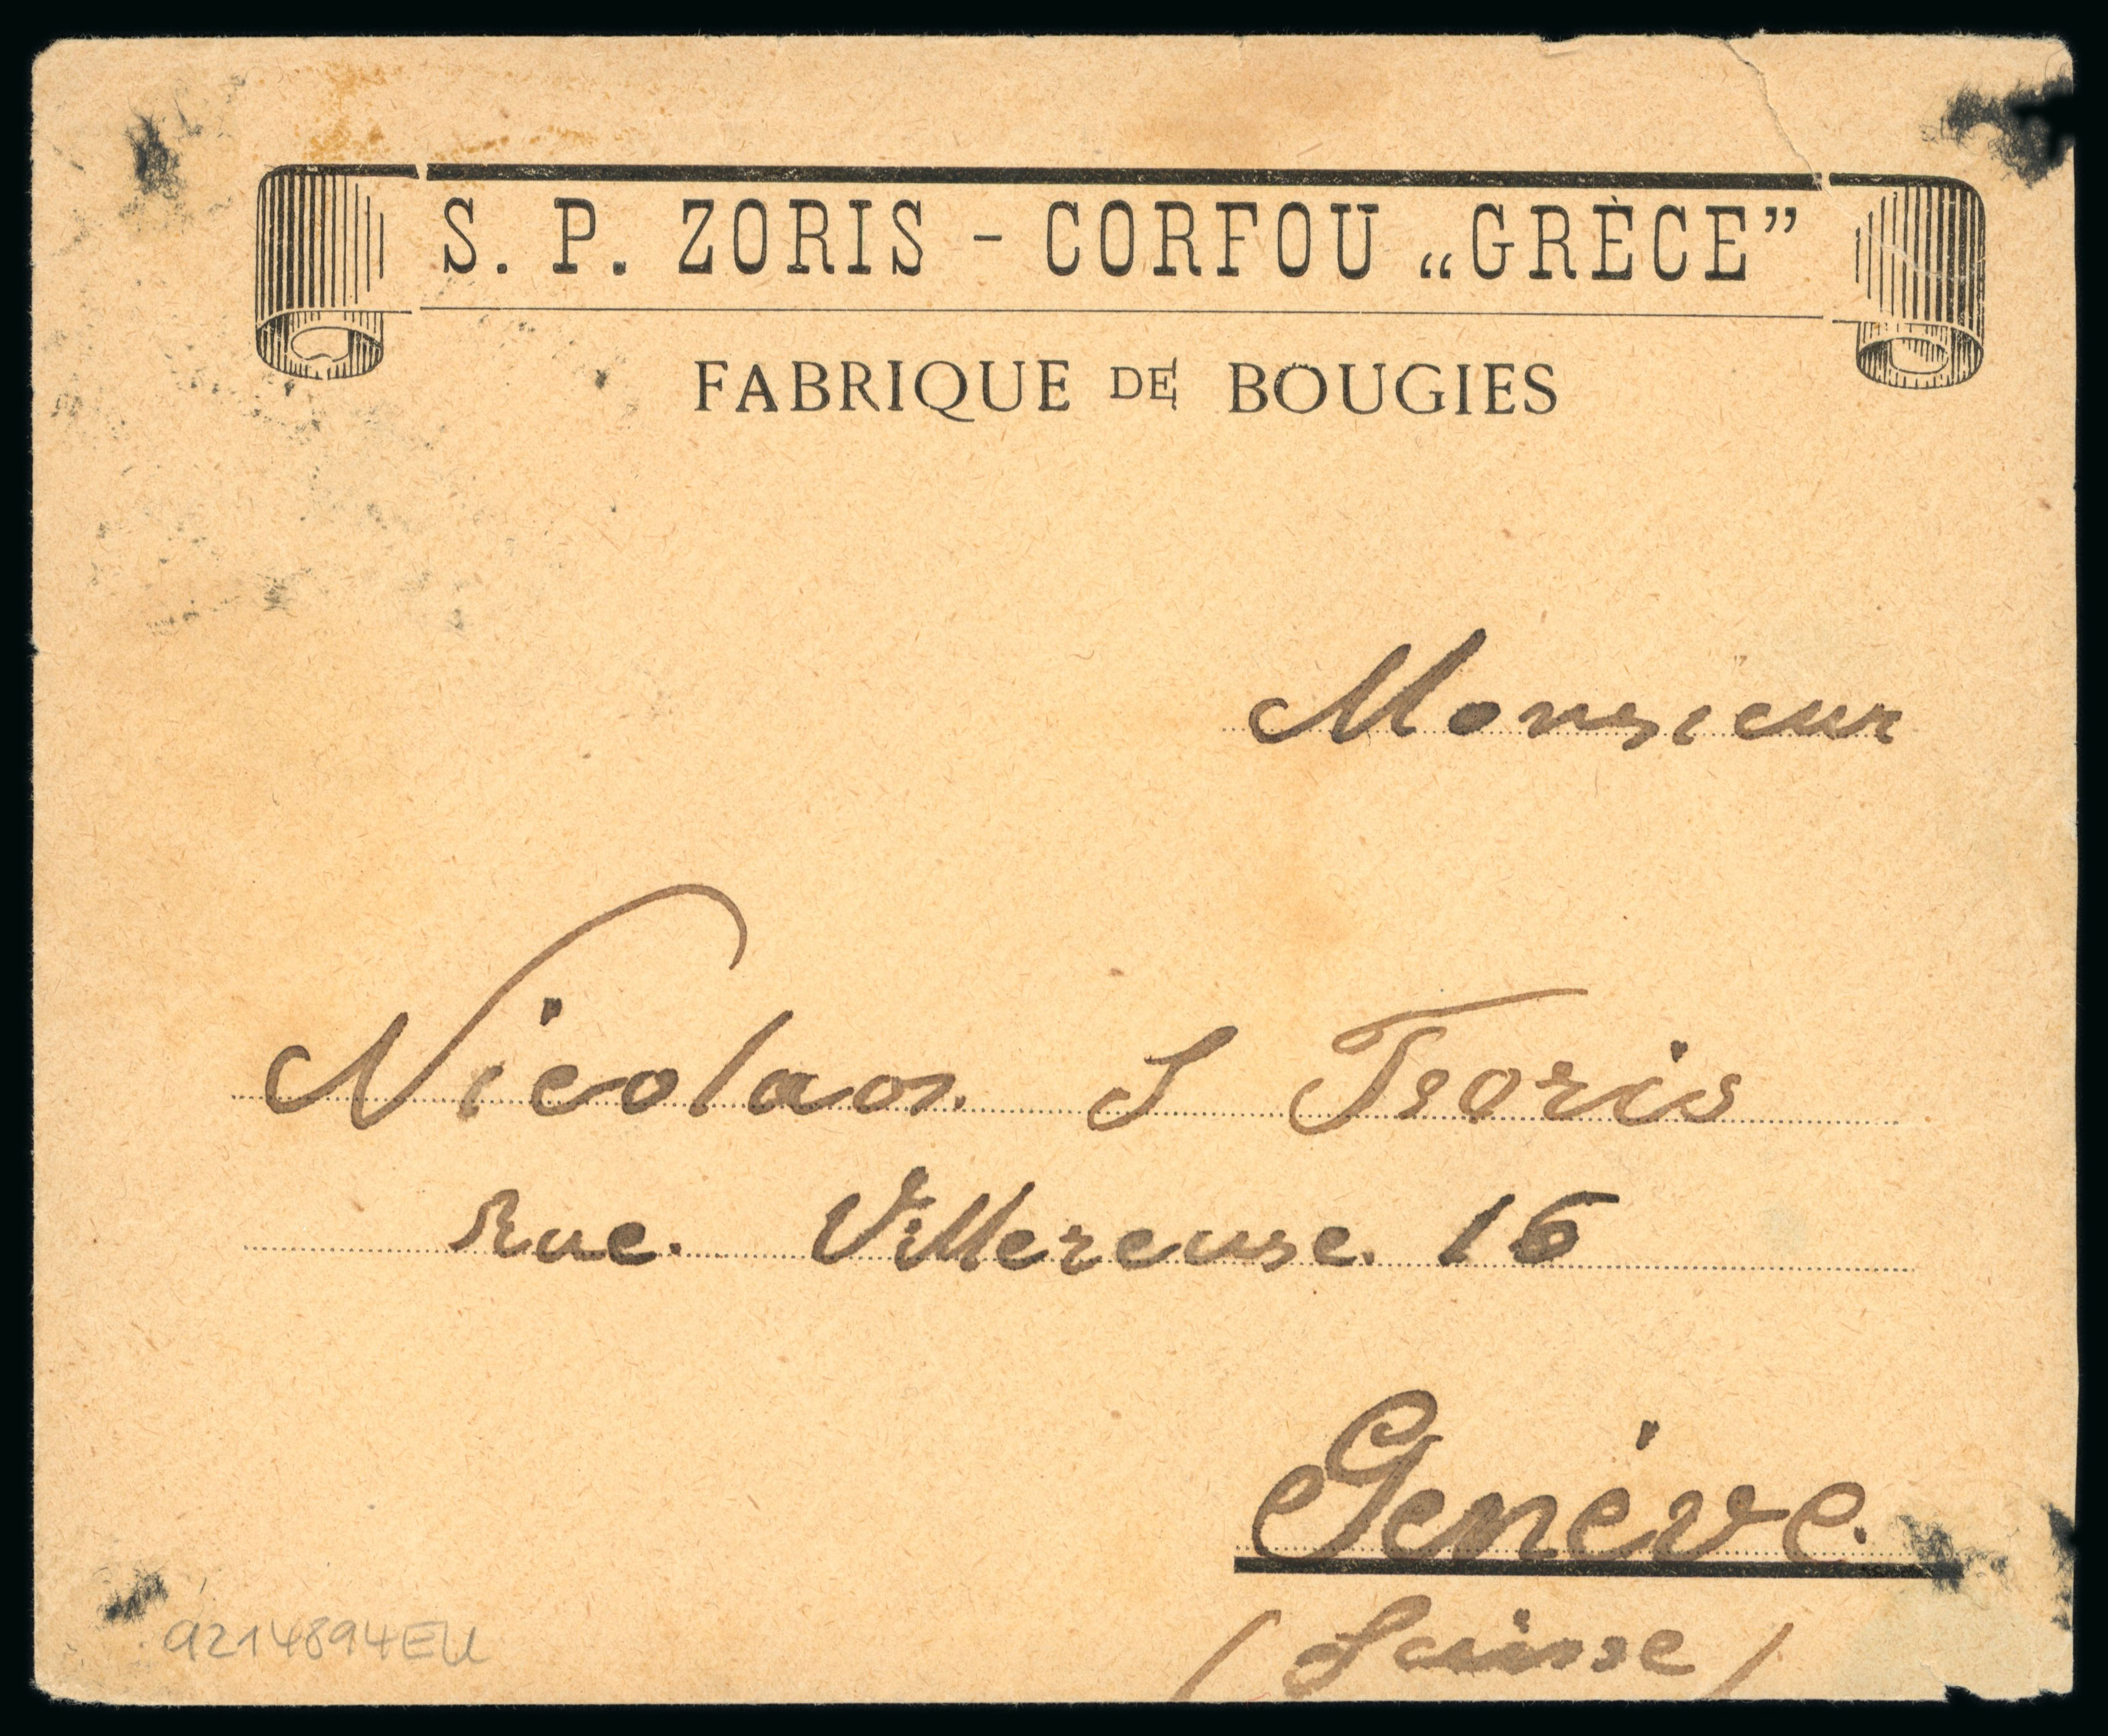 S. P. ZORIS - CORFOU „GRÈCE”
FABRIQUE DE BOUGIES
Monsieur
Nicolaos. S Tsoris
Rue. Villereuse. 16
Genève.
(Suisse)
9214894EU